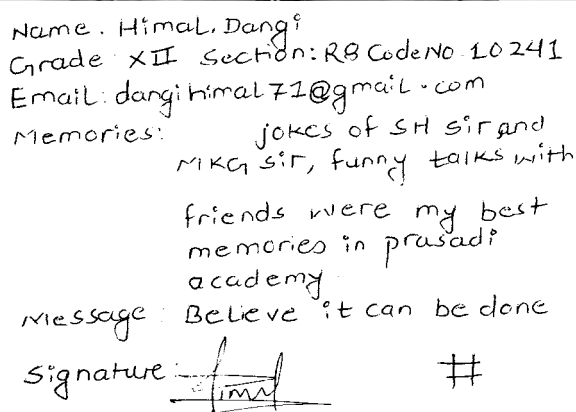 Name. Himal. Dangi
Grade XII Section: R8 Code No 10241
Email: dangihimal71@gmail.com
Memories: jokes of SH sir and
MKG sir, funny talks with
friends were my best
memories in prasadi
academy
Message: Believe it can be done
Signature: Himal #